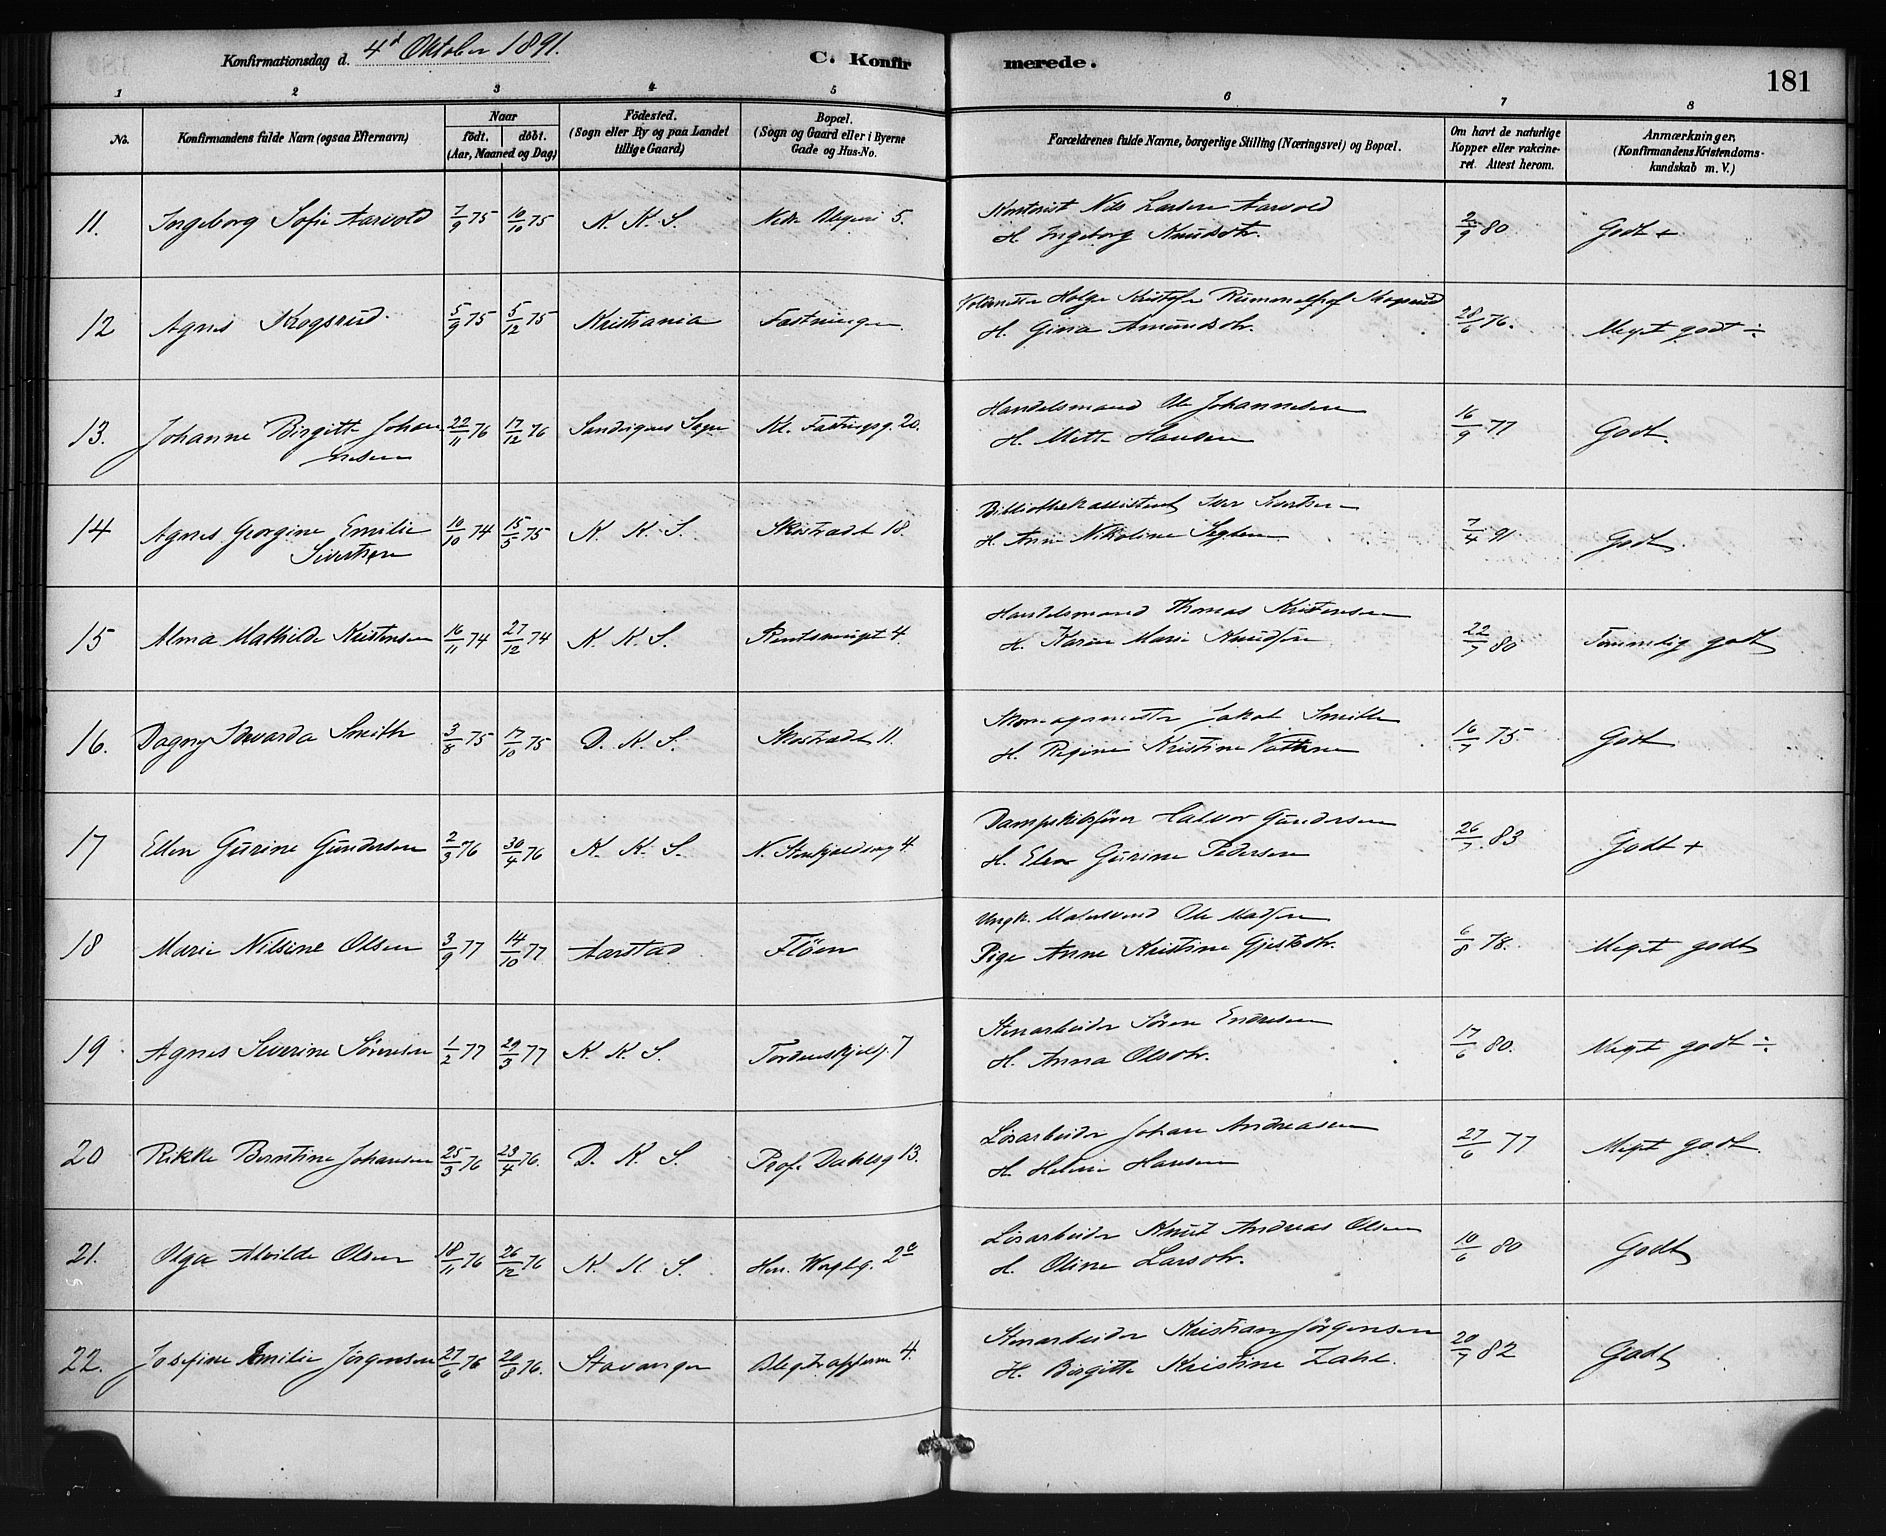 Konfirmationsdag d. 4d Oktober 1891. C. Konfirmerede. 181
1 2 3 4 5 6 7 8
No. Konfirmandens fulde Navn (ogsaa Efternavn) Naar födt. döbt. (Aar, Maaned og Dag) Födested. (Sogn eller By og paa Landet tillige Gaard) Bopæl. (Sogn og Gaard eller i Byerne Gade og Hus-No. Forældrenes fulde Navne, borgerlige Stilling (Næringsvei) og Bopæl. Om havt de naturlige Kopper eller vakcineret. Attest herom. Anmærkninger, (Konfirmandens Kristendomskundskab m. V.)
11. Ingeborg Sofie Aarvold 7/9 75 10/10 75 K. K. S. 5. Kontorist Nils Larsen Aarvold
H. Ingeborg Knudsdtr. 2/9 80 Godt +
12 Agnes Krogsrud 5/9 75 5/12 75 Kristiania Fæstningen Holge Kristofer
H. Gina Amundsdtr. 28/6 76. Meget godt ÷
13. Johanne Birgitte Johannesen 22/11 76 17/12 76 Sandvigens Sogn Kl. Fæstngsg. 20. Handelsmand Ole Johannesen
H. Mette Hansen 16/9 77 Godt.
14 Agnes Georgine Emilie Sivertsen 10/10 74 15/5 75 K. K. S. Skostrædet 18. Bibliothekassistent Iver Sivertsen
H. Anne Nikoline 7/4 91 Godt
15 Alma Mathilde Kristensen 16/11 74 27/12 74 K. K. S. 4. Handelsmand Thomas Kristensen
H. Karen Marie Knudsen 22/7 80 Temmelig godt
16. Dagny Edvarda Smith 3/8 75 17/10 75 D. K. S. Skostrædet 11. Skomagermester Jakob Smith
H. Regine Kristine 16/7 75 Godt
17 Ellen Gurine Gundersen 2/3 76 30/4 76 K. K. S. N. Stenkjeldsvg 4. Dampskibsfører Halvor Gundersen
H. Elen Gurine Pedersen 26/7 83 Godt +
18 Marie Nilsine Olsen 3/9 77 14/10 77 Aarstad Flöen Ungk. Malersvend Ole Madsen
Pige Anne Kristine Gjertsdtr. 6/8 78. Meget godt
19 Agnes Severine Sörensen 1/2 77 29/3 77 K. K. S. Tordenskjolsg. 7 Stenarbeider Sören Endresen
H. Anna Olsdtr. 17/6 80. Meget godt ÷
20 Rikke Berntine Johansen 25/3 76 23/4 76. D. K. S. Prof. Dahlsg 13. Lösarbeider Johan Andreasen
H. Helene Hansen 27/6 77 Meget godt.
21. Olga Alvilde Olsen 18/11 76 26/12 76 K. K. S. Hen. Wergelg. 2a Lösarbeider Knut Andreas Olsen
H. Oline Larsdtr. 10/6 80 Godt
22. Josefine Emilie Jörgensen 27/6 76 20/8 76. Stavanger Blegetrapperne 4. Stenarbeider Kristian Jörgensen
H. Birgitte Kristine Zahl. 20/7 82 Godt